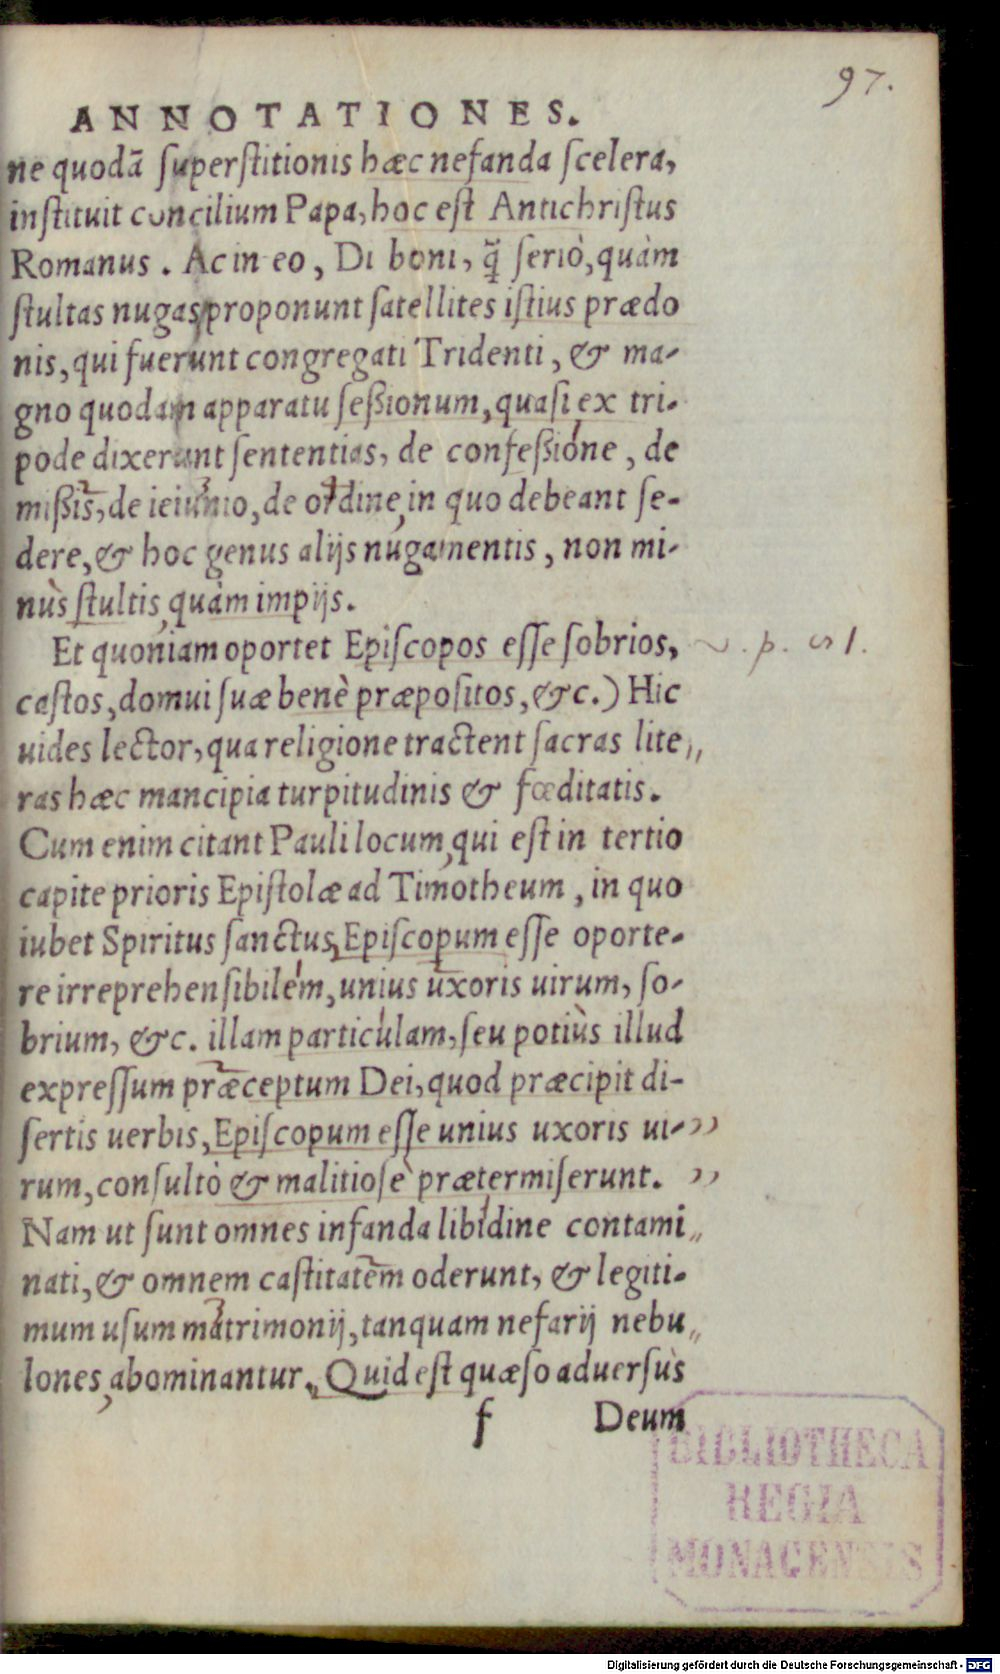 97.
ANNOTATIONES.
ne quodā ſuperſtitionis hæc nefanda ſcelera,
inſtituit concilium Papa, hoc eſt Antichriſtus
Romanus. Ac in eo, Di boni, q̃ ſeriò, quàm
ſtultas nugas proponunt ſatellites iſtius prædo
nis, qui fuerunt congregati Tridenti, & ma-
gno quodam apparatu ſeßionum, quaſi ex tri-
pode dixerunt ſententias, de confeßione, de
mißis, de ieiunio, de ordine, in quo debeant ſe-
dere, & hoc genus alijs nugamentis, non mi-
nùs ſtultis, quàm impijs.
Et quoniam oportet Epiſcopos eſſe ſobrios,
caſtos, domui ſuæ benè præpoſitos, &c.) Hic
uides lector, qua religione tractent ſacras lite
ras hæc mancipia turpitudinis & fœditatis.
Cum enim citant Pauli locum, qui eſt in tertio
capite prioris Epiſtolæ ad Timotheum, in quo
iubet Spiritus ſanctus, Epiſcopum eſſe oporte-
re irreprehenſibilem, unius uxoris uirum, ſo-
brium, &c. illam particulam, ſeu potiùs illud
expreſſum præceptum Dei, quod præcipit di-
ſertis uerbis, Epiſcopum eſſe unius uxoris ui-
rum, conſultò & malitioſè prætermiſerunt.
Nam ut ſunt omnes infanda libidine contami
nati, & omnem caſtitatem oderunt, & legiti-
mum uſum matrimonij, tanquam nefarij nebu
lones, abominantur. Quid eſt quæſo aduerſùs
f Deum
BIBLIOTHECA
REGIA
MONACENSIS
Digitalisierung gefördert durch die Deutsche Forschungsgemeinschaft - DFG